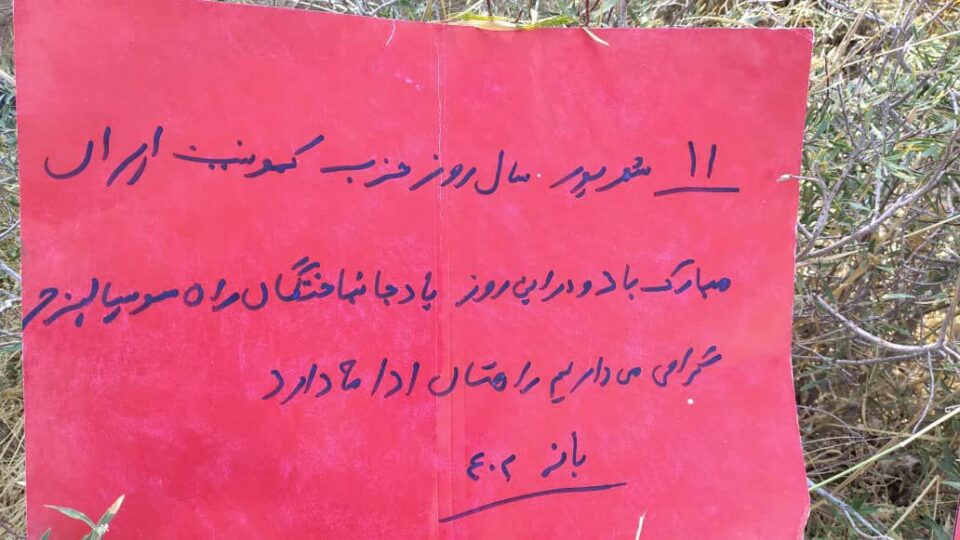 ۱۱ شهریور سال روز حزب کمونیست ایران
مبارک باد و در این روز یاد جانباختگان راه سوسیالیزم
گرامی می داریم راهتان ادامه دارد
بانه ۴۰۲